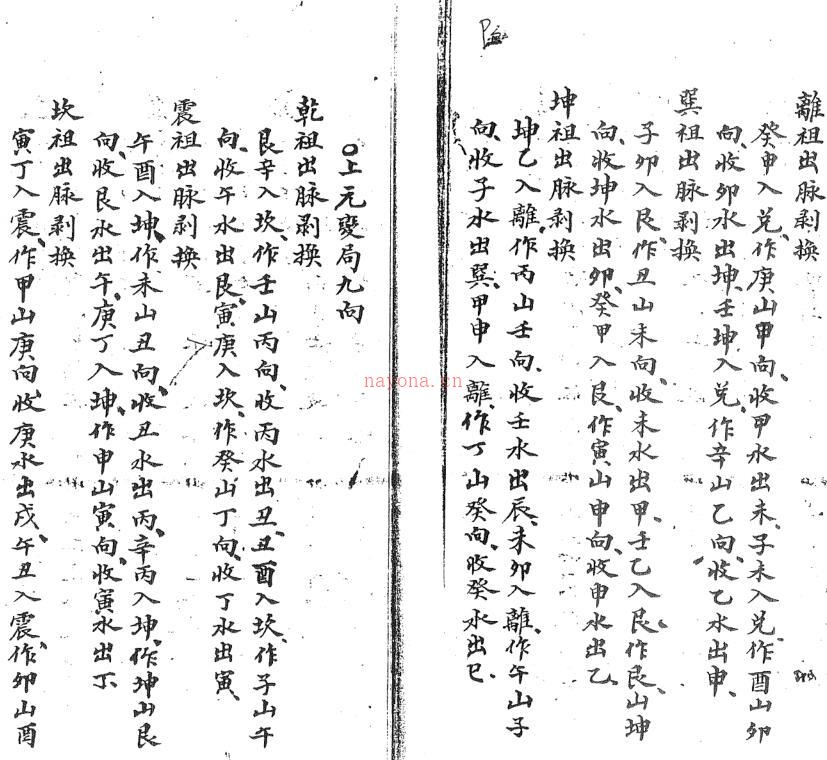 離祖出脉剥換
癸申入兌、作庚山甲向、收甲水出未、子未入兌、作酉山卯
向、收卯水出坤、壬坤入兌、作辛山乙向、收乙水出申、
巽祖出脉剥換
子卯入艮、作丑山未向、收未水出甲、壬乙入艮、作艮山坤
向、收坤水出卯、癸甲入艮、作寅山申向、收申水出乙、
坤祖出脉剥換
坤乙入離、作丙山壬向、收壬水出辰、未卯入離、作午山子
向、收子水出巽、甲申入離、作丁山癸向、收癸水出巳、
〇上元變局九向
乾祖出脉剥換
艮辛入坎、作壬山丙向、收丙水出丑、丑酉入坎、作子山午
向、收午水出艮、寅庚入坎、作癸山丁向、收丁水出寅、
震祖出脉剥換
午酉入坤、作未山丑向、收丑水出丙、辛丙入坤、作坤山艮
向、收艮水出午、庚丁入坤、作申山寅向、收寅水出丁、
坎祖出脉剥換
寅丁入震、作甲山庚向、收庚水出戌、午丑入震、作卯山酉
nayona.cn